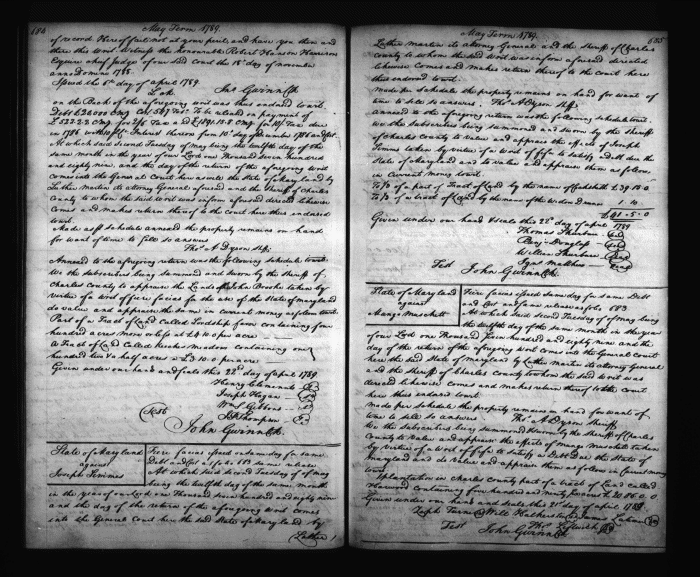 684
May Term 1789.
of record. Hereof fail not at your peril, and have you then and
there this Writ. Witness the Honourable Robert Hanson Harrison
Esquire chief Judge of our said Court the 18th day of November
anno Domini 1788.
Issued the 8th day of april 1789.
Jno Gwinn Clk
on the Back of the aforegoing writ was thus endorsed towit.
To be released on payment of
in 1786 with
At which said Second Tuesday of May being the twelfth day of the
same month in the year of our Lord one Thousand Seven hundred
and eighty nine, and the day of the return of the aforegoing writ
comes into the General Court here as well the State of Maryland by
Luther Martin its attorney General aforesaid and the Sheriff of Charles
county to whom the said Writ was in form aforesaid directed likewise
comes and makes return thereof to the Court here thus endorsed
towit.
Made as schedule annexed the property remains on hand
for want of time to sell so answers
Thos A Dyson Shff.
Annexed to the aforegoing return was the following schedule towit.
We the subscribers being summoned and sworn by the Sheriff of
Charles County to appraise the Lands of John Brooke taken by
virtue of a writ of fieri facias for the use of the State of Maryland
do value and appraise the same in current money as follows towit.
Part of a Tract of Land called Lordship favor containing four
hundred acres more or less at per acre
A Tract of Land called Meadow containing one
hundred two & a half acres a £3.10.0 per acre
Given under our hands and seals this 22d day of april 1789.
Henry Clements
Joseph Hagan
Wm Gibbons
Thompson
Test
John Gwinn Clk.
State of Maryland
against
Joseph Simms
Fieri facias issued on same day for same
Debt and Cost as folio 683 same release
At which said Second Tuesday of May
being the twelfth day of the same month
in the year of our Lord one Thousand Seven hundred and eighty nine
and the day of the return of the aforegoing writ comes
into the General Court here the said State of Maryland by
Luther
May Term 1789.
685
Luther Martin its attorney General and the Sheriff of Charles
county to whom the said Writ was in form aforesaid directed
likewise comes and makes return thereof to the Court here
thus endorsed towit.
Made per Schedule the property remains on hand for want of
time to sell so answers. Thos A Dyson Shff.
annexed to the aforegoing return was the following schedule towit.
We the subscribers being summoned and sworn by the Sheriff
of Charles County to value and appraise the effects of Joseph
Simms taken by virtue of a writ of fifa to satisfy a Debt due the
State of Maryland and to value and appraise them as follows
in current money towit.
To ps of a part of Tract of Land by the name of £39.15.0
To ps of a tract of Land by the name of the Widow Dunaw 1.10
£41.5.0
Given under our hand & seals this 22d day of april 1789
Thomas
Benj. Douglass
William
Ign Matthews
Test John Gwinn Clk.
State of Maryland
against
Mungo Muschett
Fieri facias issued same day for same Debt
and Cost and for release as folio 683
At which said second Tuesday of May being
the twelfth day of the same month in the year
of our Lord one Thousand Seven hundred and eighty nine and the
day of the return of the aforegoing writ comes into the General Court
here the said State of Maryland by Luther Martin its attorney General
and the Sheriff of Charles County to whom the said writ was
directed likewise comes and makes return thereof to the Court
here thus endorsed towit.
Made per Schedule the property remains on hand for want of
time to sell so answers. Thos A Dyson Sheriff
We the subscribers being summoned & sworn by the Sheriff of Charles
County to Value and appraise the effects of Mungo Muschett taken
by virtue of a writ of fifa to satisfy a Debt due the State of
Maryland and do Value and appraise them as follows in Current money
towit.
1 plantation in Charles County part of a tract of Land called
containing four hundred and ninety five acres
Given under our hands and seals this 21st day of april 1789.
Zeph Turner
Test John Gwinn Clk.